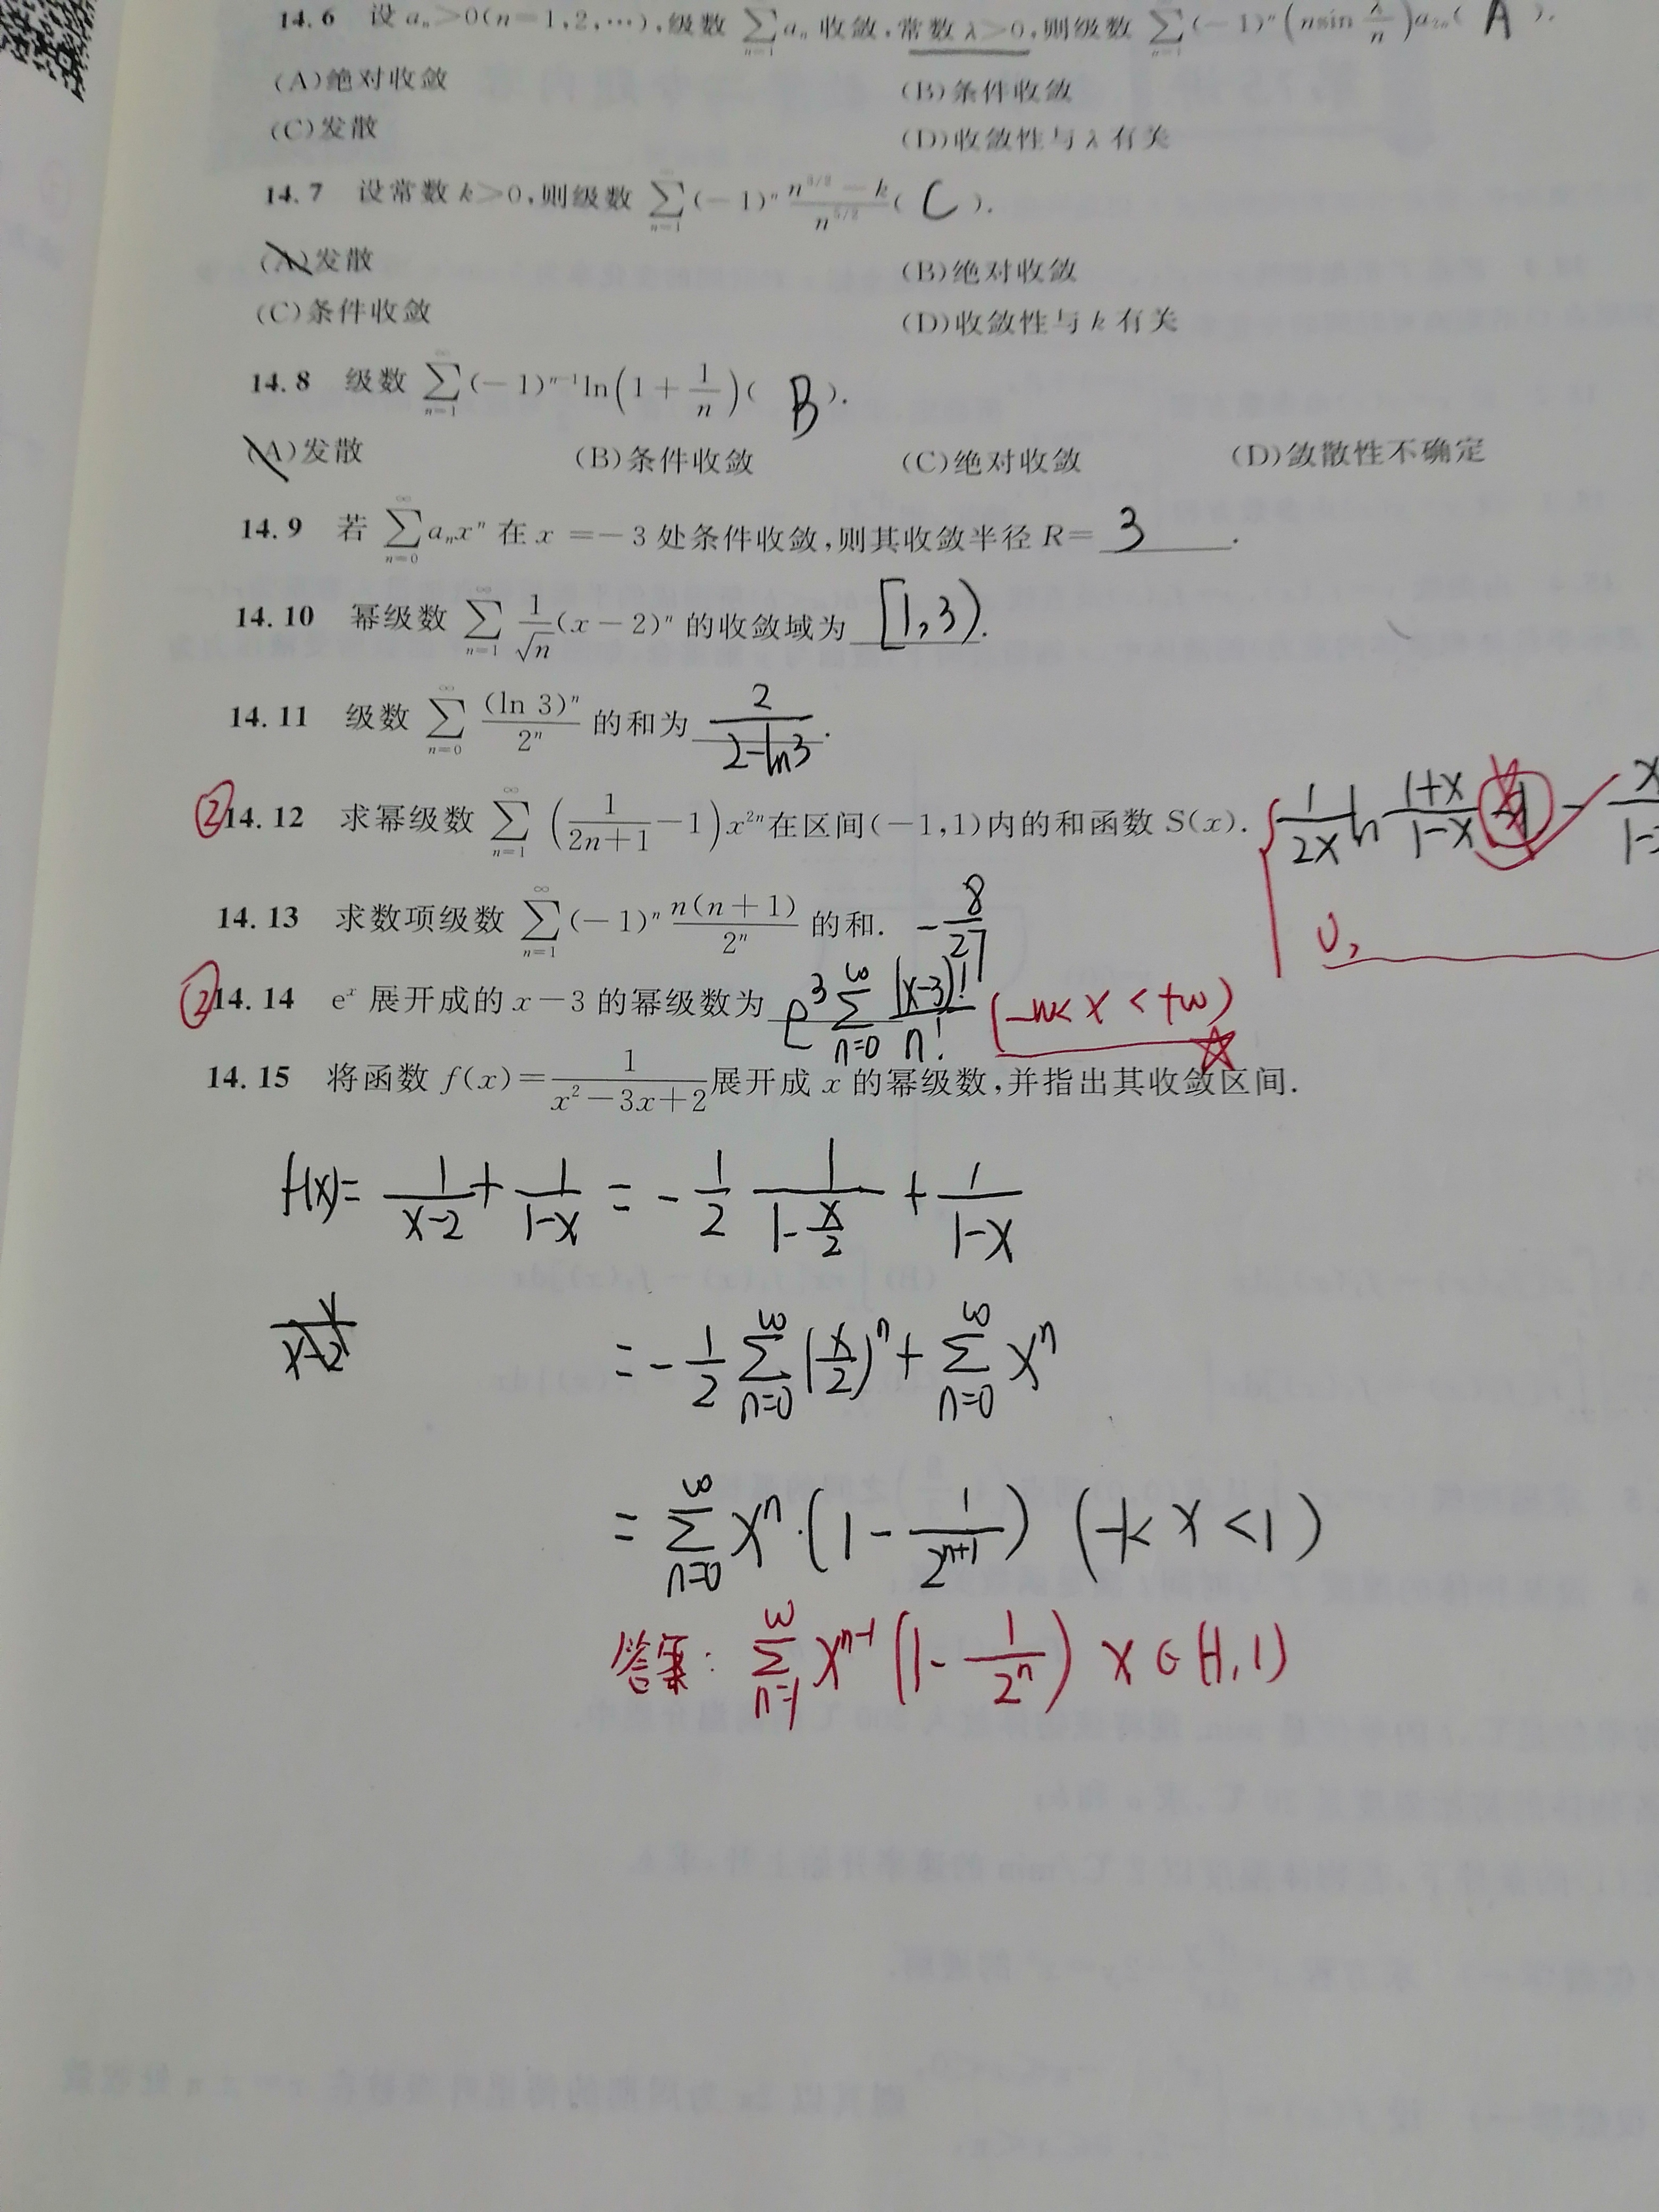 14.6 设 aₙ>0(n=1,2,…),级数 ∑_{n=1}^{∞} aₙ 收敛,常数 λ>0,则级数 ∑_{n=1}^{∞} (-1)ⁿ (n sin λ/n) a₂ₙ( A ).
(A)绝对收敛 (B)条件收敛
(C)发散 (D)收敛性与 λ 有关
14.7 设常数 k>0,则级数 ∑_{n=1}^{∞} (-1)ⁿ (n^{3/2} - k)/n^{5/2} ( C ).
(A)发散 (B)绝对收敛
(C)条件收敛 (D)收敛性与 k 有关
14.8 级数 ∑_{n=1}^{∞} (-1)^{n-1} ln(1 + 1/n)( B ).
(A)发散 (B)条件收敛 (C)绝对收敛 (D)敛散性不确定
14.9 若 ∑_{n=0}^{∞} aₙxⁿ 在 x = -3 处条件收敛,则其收敛半径 R= 3 .
14.10 幂级数 ∑_{n=1}^{∞} 1/√n (x-2)ⁿ 的收敛域为 [1,3).
14.11 级数 ∑_{n=0}^{∞} (ln 3)ⁿ/2ⁿ 的和为 2/(2-ln3) .
② 14.12 求幂级数 ∑_{n=1}^{∞} (1/(2n+1) - 1) x²ⁿ 在区间(-1,1)内的和函数 S(x). { 1/(2x) ln (1+x)/(1-x) -
0,
14.13 求数项级数 ∑_{n=1}^{∞} (-1)ⁿ n(n+1)/2ⁿ 的和. -8/27
② 14.14 eˣ 展开成的 x-3 的幂级数为 e³ ∑_{n=0}^{∞} (x-3)!/n! (-∞<x<+∞) ☆
14.15 将函数 f(x)= 1/(x²-3x+2) 展开成 x 的幂级数,并指出其收敛区间.
f(x)= 1/(x-2) + 1/(1-x) = -1/2 · 1/(1-x/2) + 1/(1-x)
= -1/2 ∑_{n=0}^{∞} (x/2)ⁿ + ∑_{n=0}^{∞} xⁿ
= ∑_{n=0}^{∞} xⁿ·(1 - 1/2^{n+1}) (-1<x<1)
答案: ∑_{n=1}^{∞} x^{n-1} (1 - 1/2ⁿ) x∈(-1,1)